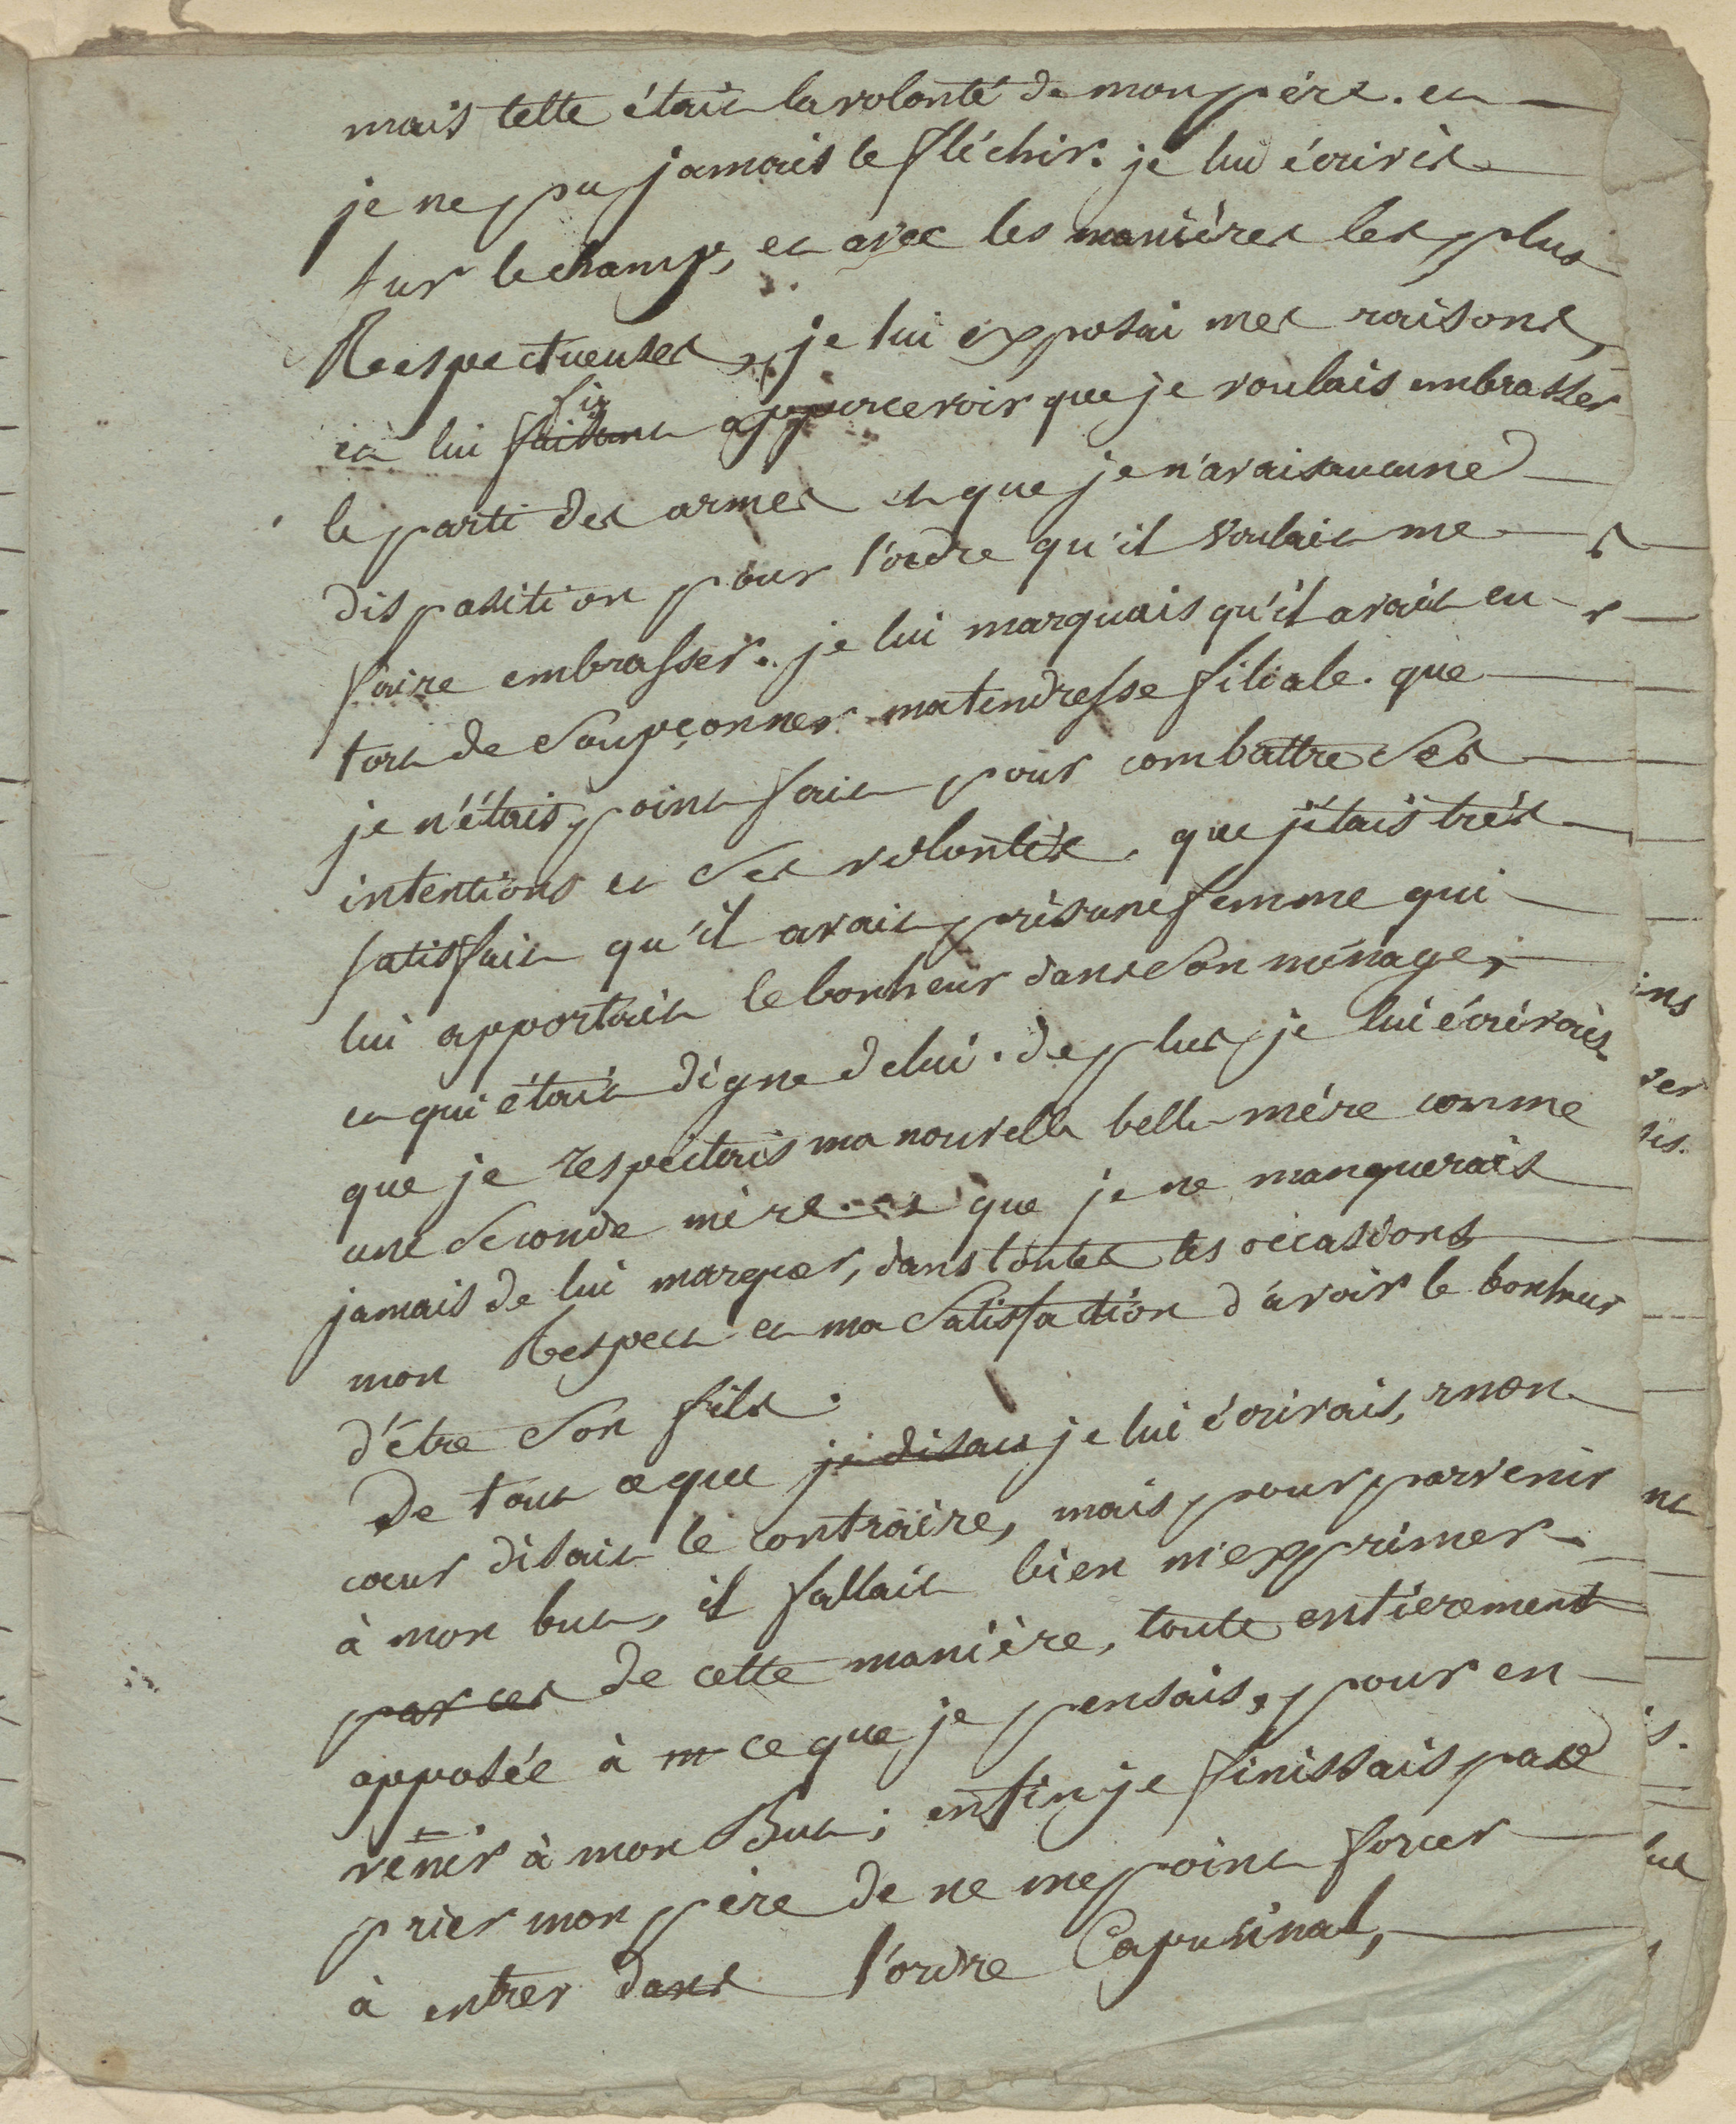 mais telle était la volonté de mon père. et
je ne pu jamais le fléchir. je lui écrivis
sur le champ, et avec les manières les plus
Respectueuses, je lui exposai mes raisons,
fis
et lui faisant appercevoir que je voulais embrasser
le parti des armes et que je n'avais aucune
disposition pour l'ordre qu'il voulait me
faire embrasser. je lui marquais qu'il avait eu
tort de soupçonner ma tendresse filiale. que
je n'étais point fait pour combattre ses
intentions et ses volontés. que j'étais très
satisfait qu'il avait pris une femme qui
lui apportait le bonheur dans son ménage,
et qui était digne de lui. de plus, je lui écrivais
que je respectais ma nouvelle belle-mère comme
une seconde mère et que je ne manquerais
jamais de lui marquer, dans toutes les occasions
mon Respect et ma satisfaction d'avoir le bonheur
d'être son fils.
De tout ce que je disais je lui écrivais, mon
cœur disait le contraire, mais pour parvenir
à mon but, il fallait bien m'exprimer
par ces de cette manière, toute entièrement
opposée à m ce que je pensais, pour en
venir à mon But; enfin je finissais par
prier mon père de ne me point forcer
à entrer dans l'ordre Capusinal,
ins
ver
sis.
nt
is.
lut